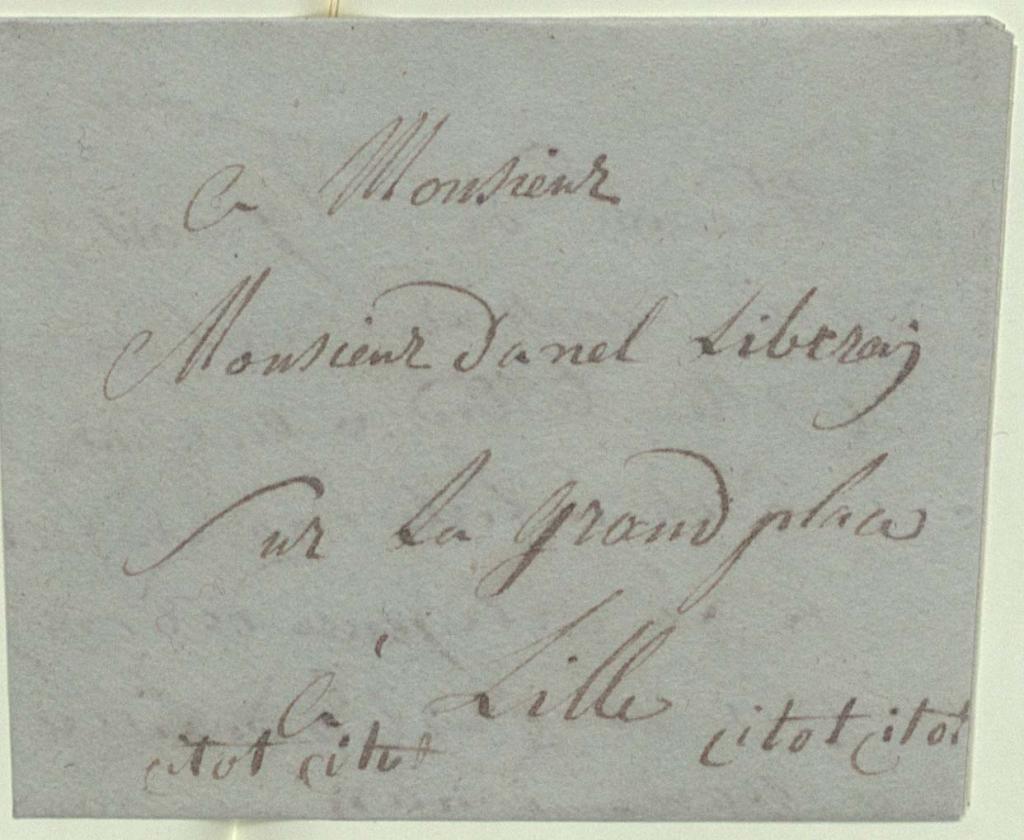 a Monsieur
Monsieur danel Liberaij
sur La grand place
à Lille
citot citot citot citot